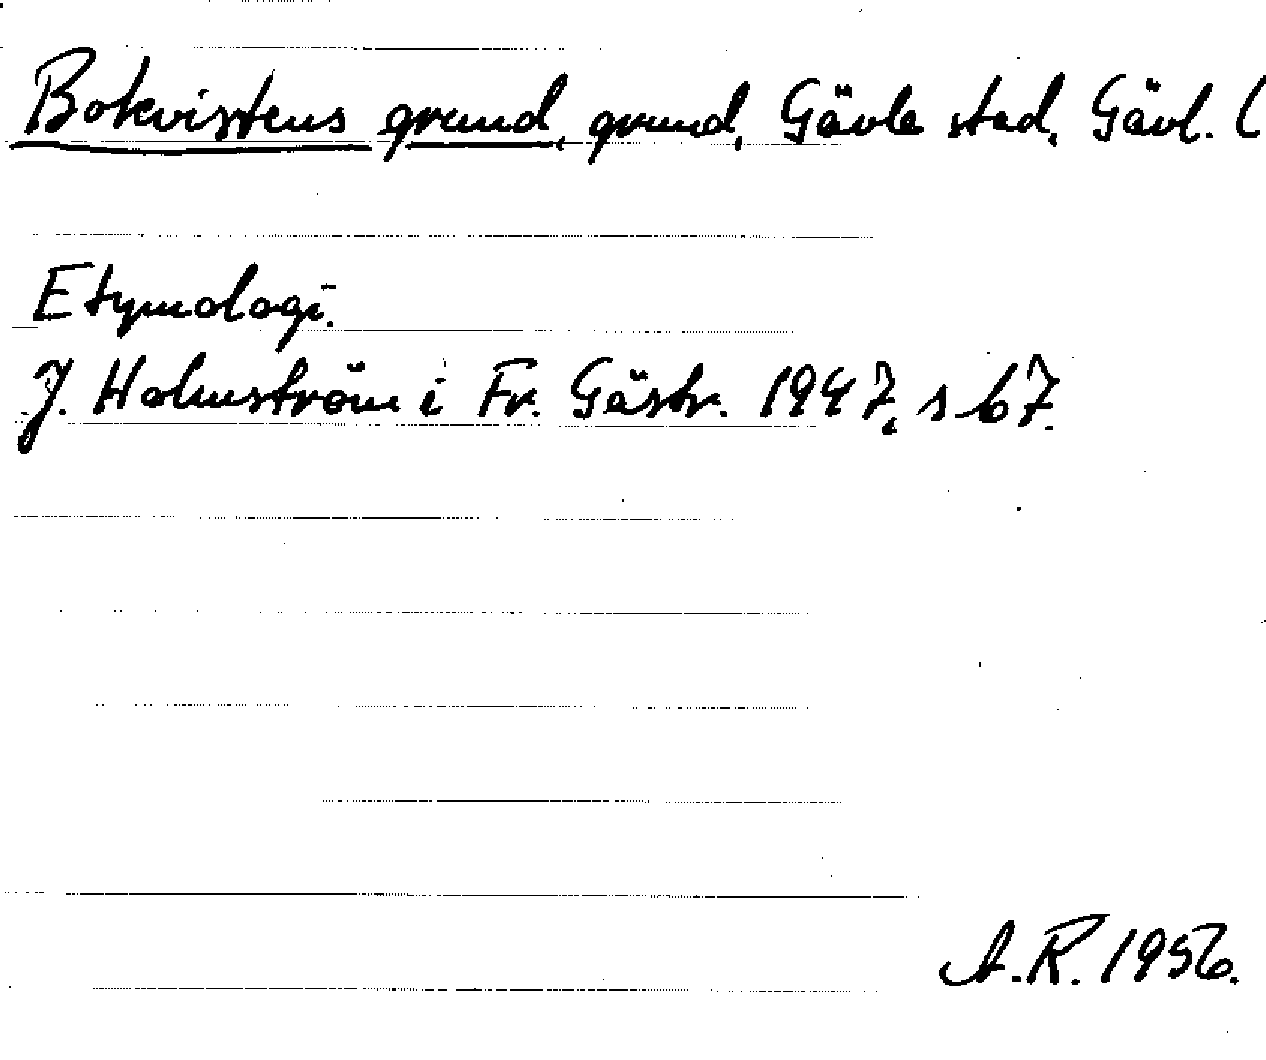 Bokvistens grund, grund, Gävle stad, Gävl. l
Etymologi.
J. Holmström i Fr. Gästr. 1947, s 67.
A.R. 1956.